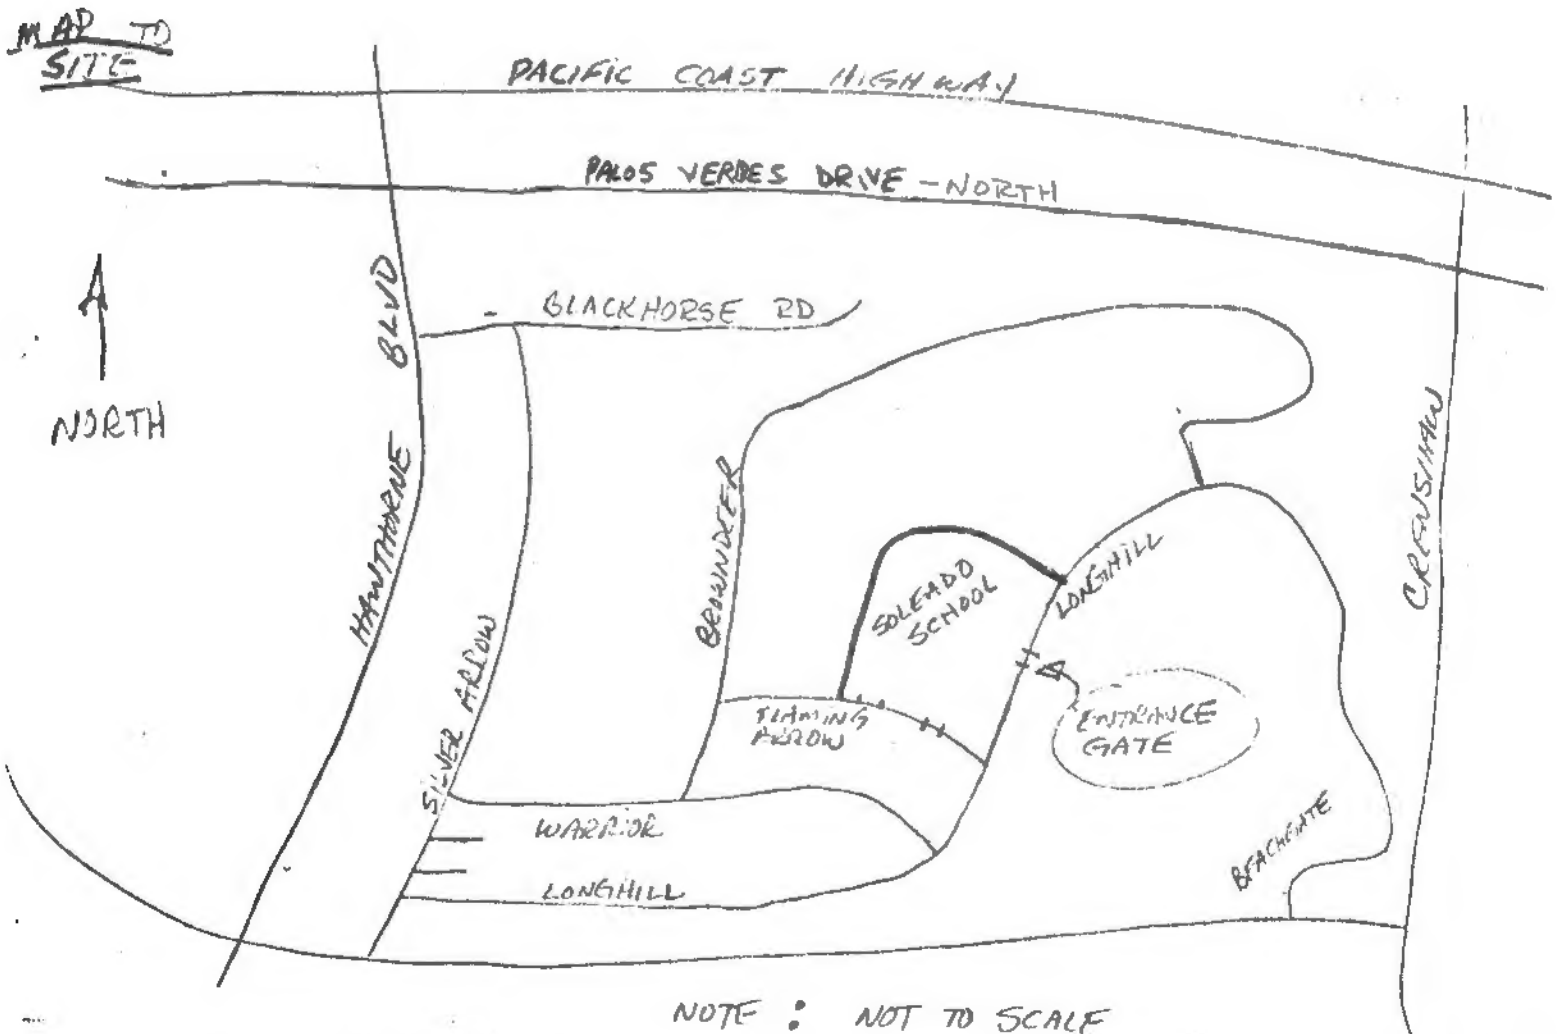 MAP TO
SITE
PACIFIC COAST HIGHWAY
PALOS VERDES DRIVE - NORTH
NORTH
HAWTHORNE BLVD
BLACKHORSE RD
SILVER ARROW
BROWNDEER
SOLEADO
SCHOOL
LONGHILL
CRENSHAW
FLAMING
ARROW
ENTRANCE
GATE
WARRIOR
LONGHILL
BEACHGATE
NOTE : NOT TO SCALE